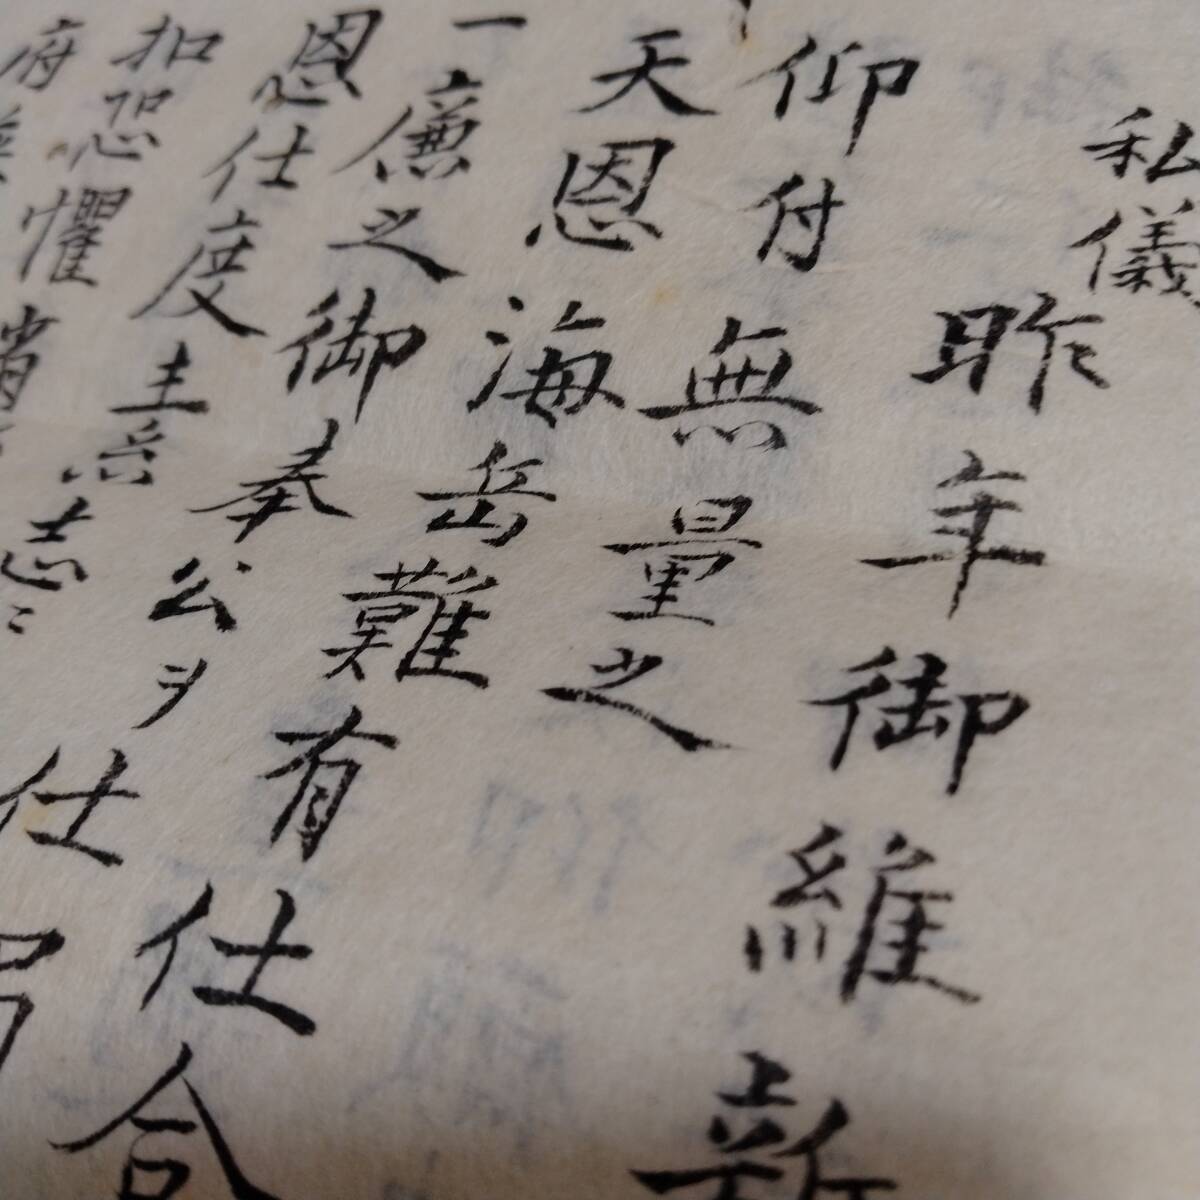 私儀
昨年御維新
仰付無量之
天恩海岳難有仕合
一廉之御奉公ヲ仕
恩仕度主志
扣恐懼
府